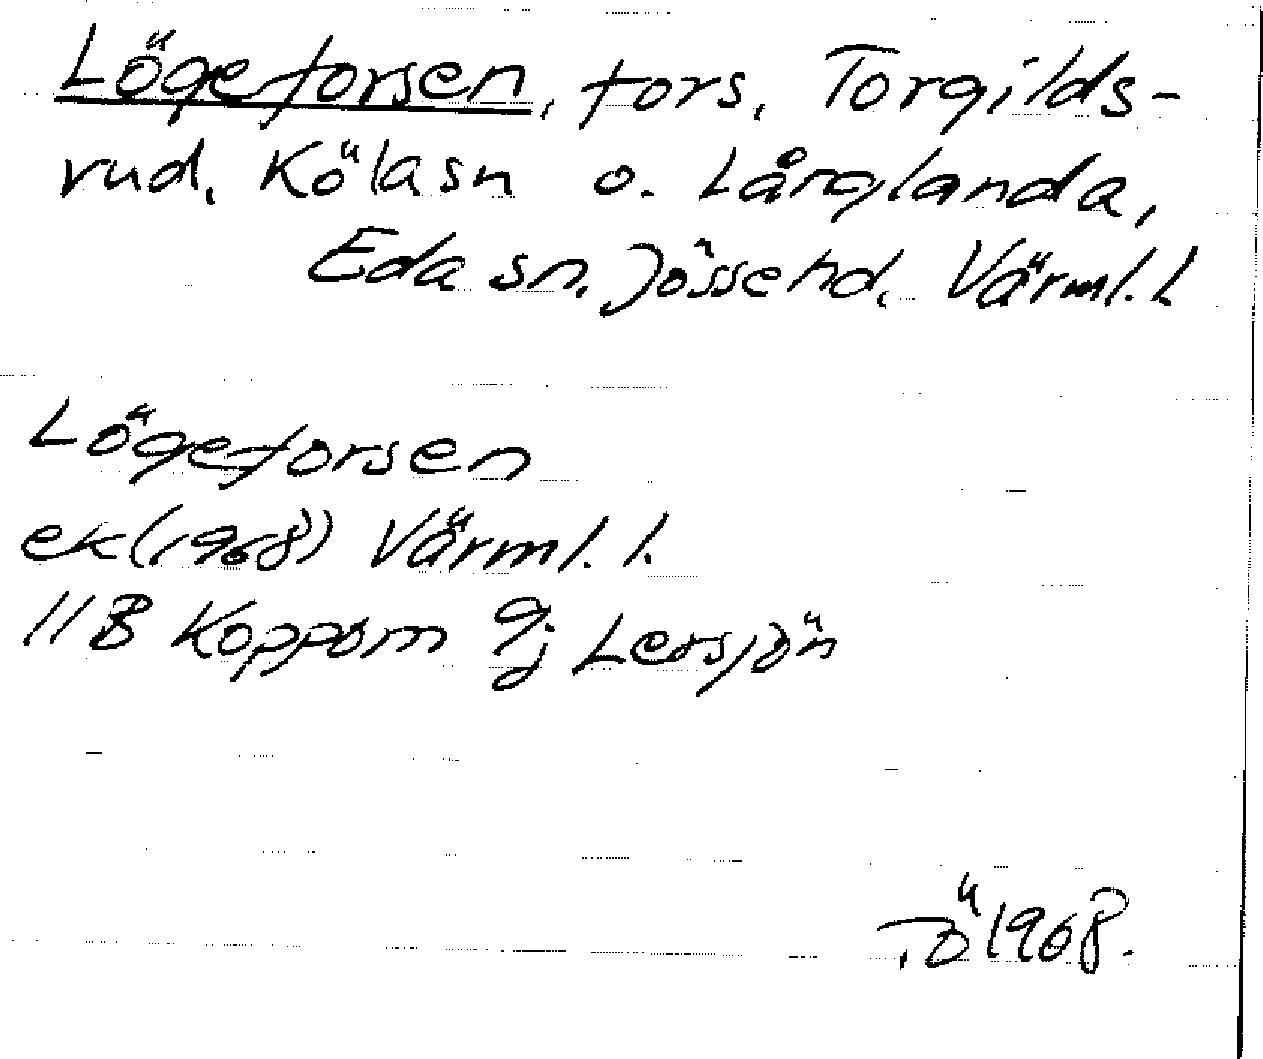 Lögeforsen, fors, Torgilds-
rud, Köla sn o. Långlanda,
Eda sn, Jösse hd, Värml. l.
Lögeforsen
ek (1968) Värml. l.
11B Koppom 9j Lersjön
TÖ 1968.